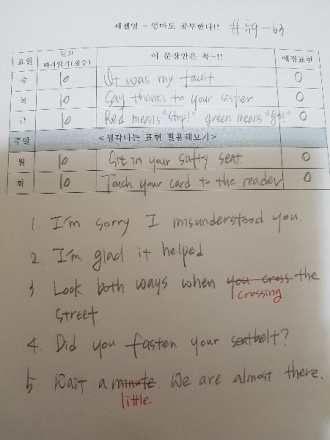 세젤잉 - 엄마도 공부한다!! #49-53
요일 이 문장만은 꼭~!! 애정표현
수 10 It was my fault 0
목 10 Say thanks to your sister 0
금 10 Red means "stop!" green means "go!" 0
주말 <생각나는 표현 활용해보기>
월 10 Sit in your safty seat 0
화 10 Touch your card to the reader 0
1. I'm sorry I misunderstood you.
2. I'm glad it helped
3 Look both ways when you cross the
crossing
street
4. Did you fasten your seatbelt?
5. Wait a minute. We are almost there.
little